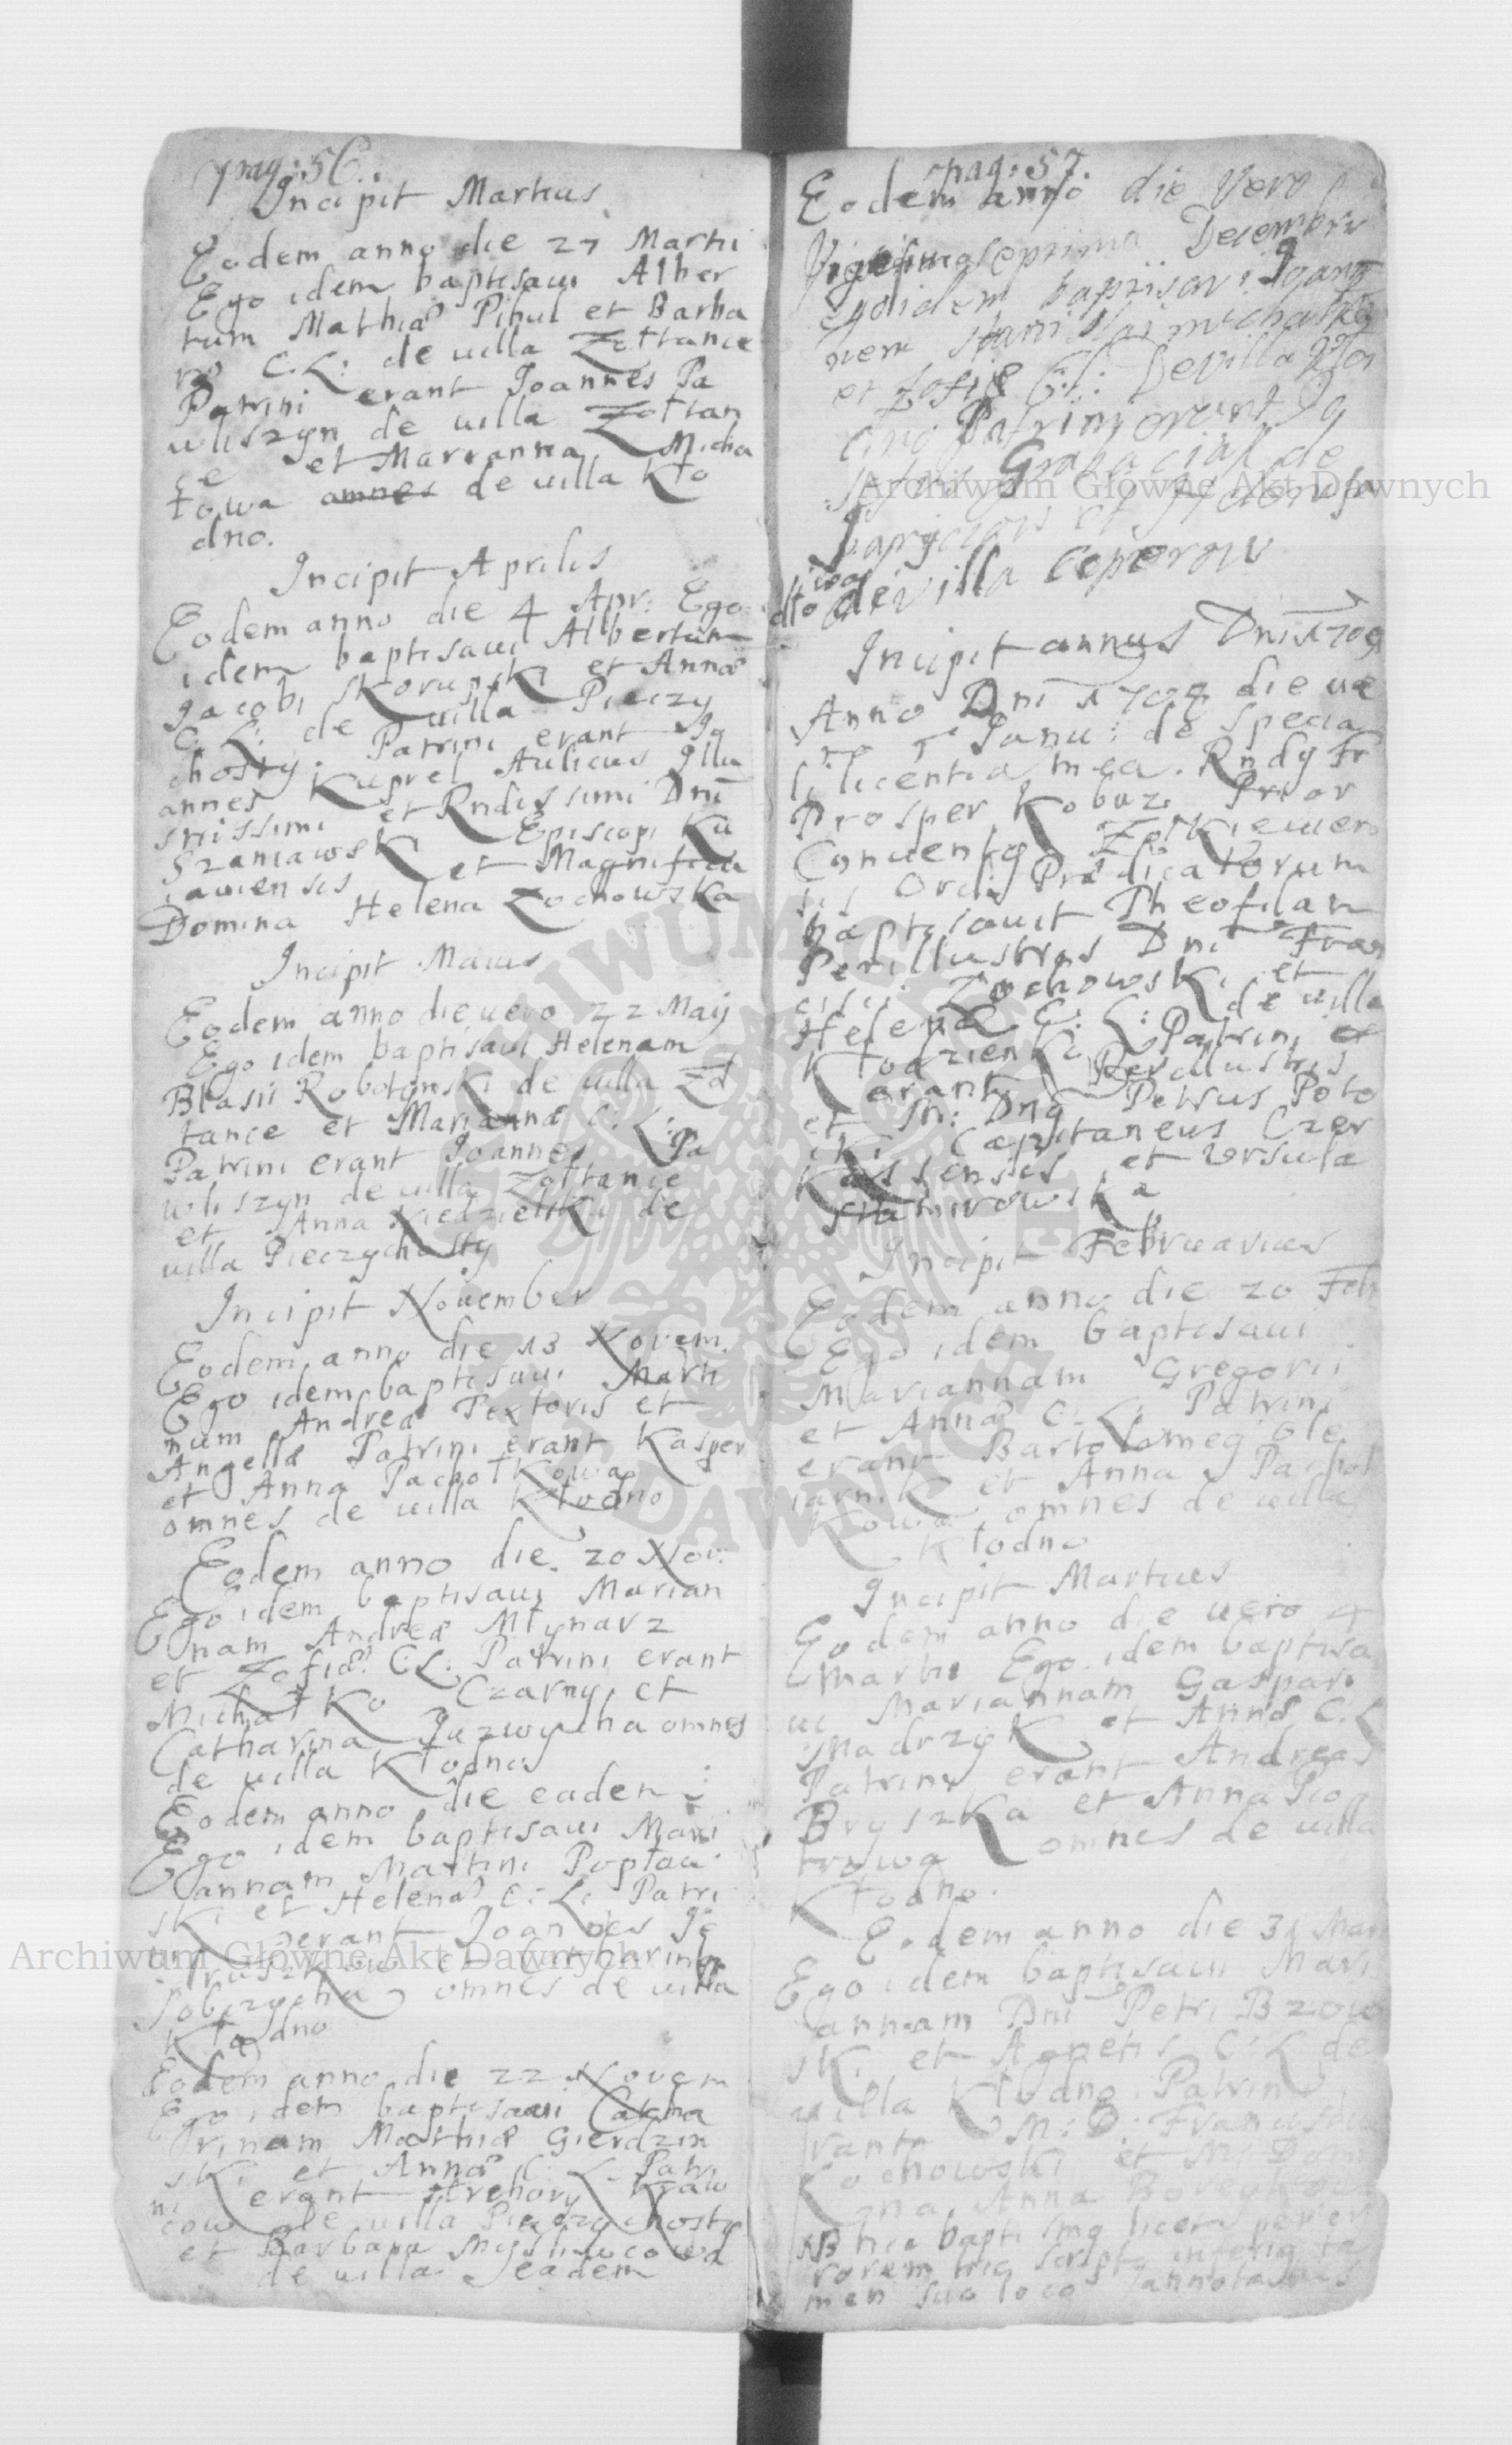 pag: 56.
Incipit Martius
Eodem anno die 27 Martii
Ego idem baptisavi Alber
tum Mathiæ Pihul et Barba
ræ C. L: de uilla Zołtance
Patrini erant Joannes Pa
wliszyn de uilla Zołtan
ce et Marianna Micha
łowa omnes de uilla Kło
dno.
Incipit Aprilis
Eodem anno die 4 Apr: Ego
idem baptisaui Albertum
Jacobi Skorupski et Annæ
C. L: de uilla Pieczy
chosty. Patrini erant Jo
annes Kuprel Aulicus Illu
strissimi et Rndissimi Dni
Szaniawski Episcopi Ku
iauiensis et Magnifica
Domina Helena Zochowska
Incipit Maius
Eodem anno die uero 22 Maij
Ego idem baptisaui Helenam
Blasii Robotynski de uilla Zoł
tance et Mariannæ C: L:
Patrini erant Joannes Pa
wliszyn de uilla Zołtance
et Anna Niedzielska de
uilla Pieczychosty
Incipit Nouember
Eodem anno die 13 Novem.
Ego idem baptisaui Marti
num Andreæ Textoris et
Angellæ Patrini erant Kasper
et Anna Pachołkowa
omnes de uilla Kłodno
Eodem anno die. 20 Nov:
Ego idem baptisaui Marian
nam Andreæ Młynarz
et Zofiæ C.L: Patrini erant
Michałko Czarny et
Catharina Juzwycha omnes
de uilla Kłodno
Eodem anno die eadem:
Ego idem baptisaui Mari
annam Martini Popław
ski et Helenæ C: L: Patri
ni erant Joannes Je
druszkow et Catharina
Sobczycha omnes de uilla
Kłodno
Eodem anno die 22 Novem
Ego idem baptisaui Catha
rinam Mathiæ Gierdzin
ski et Annæ C: L: Patri
ni erant Hrehory Kraw
cow de uilla Pieczychosty
et Barbara Mysliwcowa
de uilla eadem
pag: 57.
Eodem anno die Vero
Vigesimaseptima Decembris
Ego idem baptisavi Joan
nem Stanislai Michalko
et Zofiæ C: L: De villa Kło
dno Patrini erant Jo
Grabacial de
de villa Ceperow
Incipit annus Dni 1709
Anno Dni 1709 die ue
ro Janu: de specia
li licentia mea. Rndg Fr
Prosper Kobuz Prior
Conuentg Zołkiewien
sis Ordis Prædicatorum
baptisauit Theofilam
Perillustris Dni Fran
cisci Zochowski et
Helenæ C: L: de uilla
Kłodzienko Patrini et
erant Perillustris
et M: Dng Petrus Poto
cki Capitaneus Czer
kassensis et Ursula
Incipit Februarius
Eodem anno die 20 Feb
Ego idem baptisaui
Mariannam Gregorii
et Annæ C: L: Patrini
erant Bartolomeg Ole
iarnik et Anna Pachoł
kowa omnes de uilla
Kłodno
Incipit Martius
Eodem anno die uero 4
Martii Ego idem baptisa
ui Mariannam Gaspari
Madrzyk et Annæ C: L
Patrini erant Andreas
Bryszka et Anna Pio
trowa omnes de uilla
Kłodno.
Eodem anno die 31 Mar
Ego idem baptisaui Mari
annam Dni Petri Bzow
ski et Agnetis C: L de
uilla Kłodno. Patrini e
rant M: D: Franciscus
Zochowski et M: Domi
na Anna
NB hic baptismg licet per er
rorem hic scriptg interim ta
men suo loco annotatus
Archiwum Główne Akt Dawnych
Archiwum Główne Akt Dawnych
ARCHIWUM GŁÓWNE AKT DAWNYCH